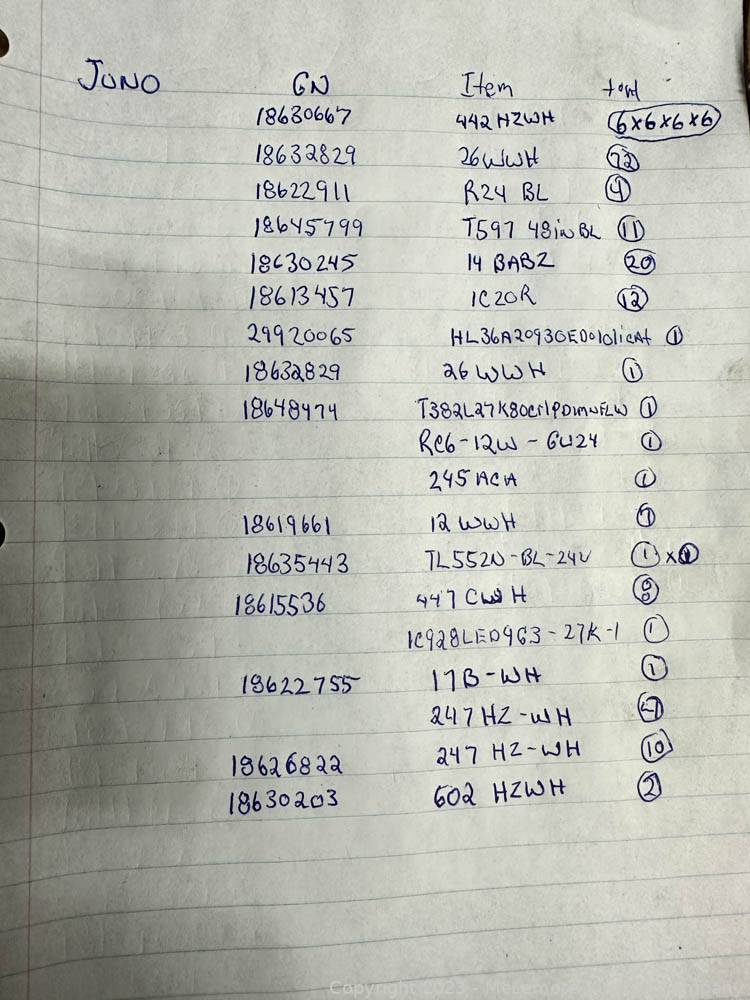 JUNO GN Item total
18630667 442 HZWH 6x6x6x6
18632829 26WWH 72
18622911 R24 BL 4
18645799 T597 48in BL 11
18630245 14 BABZ 20
18613457 IC20R 12
29920065 1
18632829 26 WWH 1
18648474 1
RC6-12W-GU24 1
245 ACA 1
18619661 12 WWH
18635443 TL552N-BL-24V 1 x
18615536 447 CWH 8
IC928LEDG3-27K-1 1
18622755 17B-WH 1
247 HZ-WH
18626822 247 HZ-WH 10
18630203 602 HZWH 2
Copyright 2023 - McLemore Company